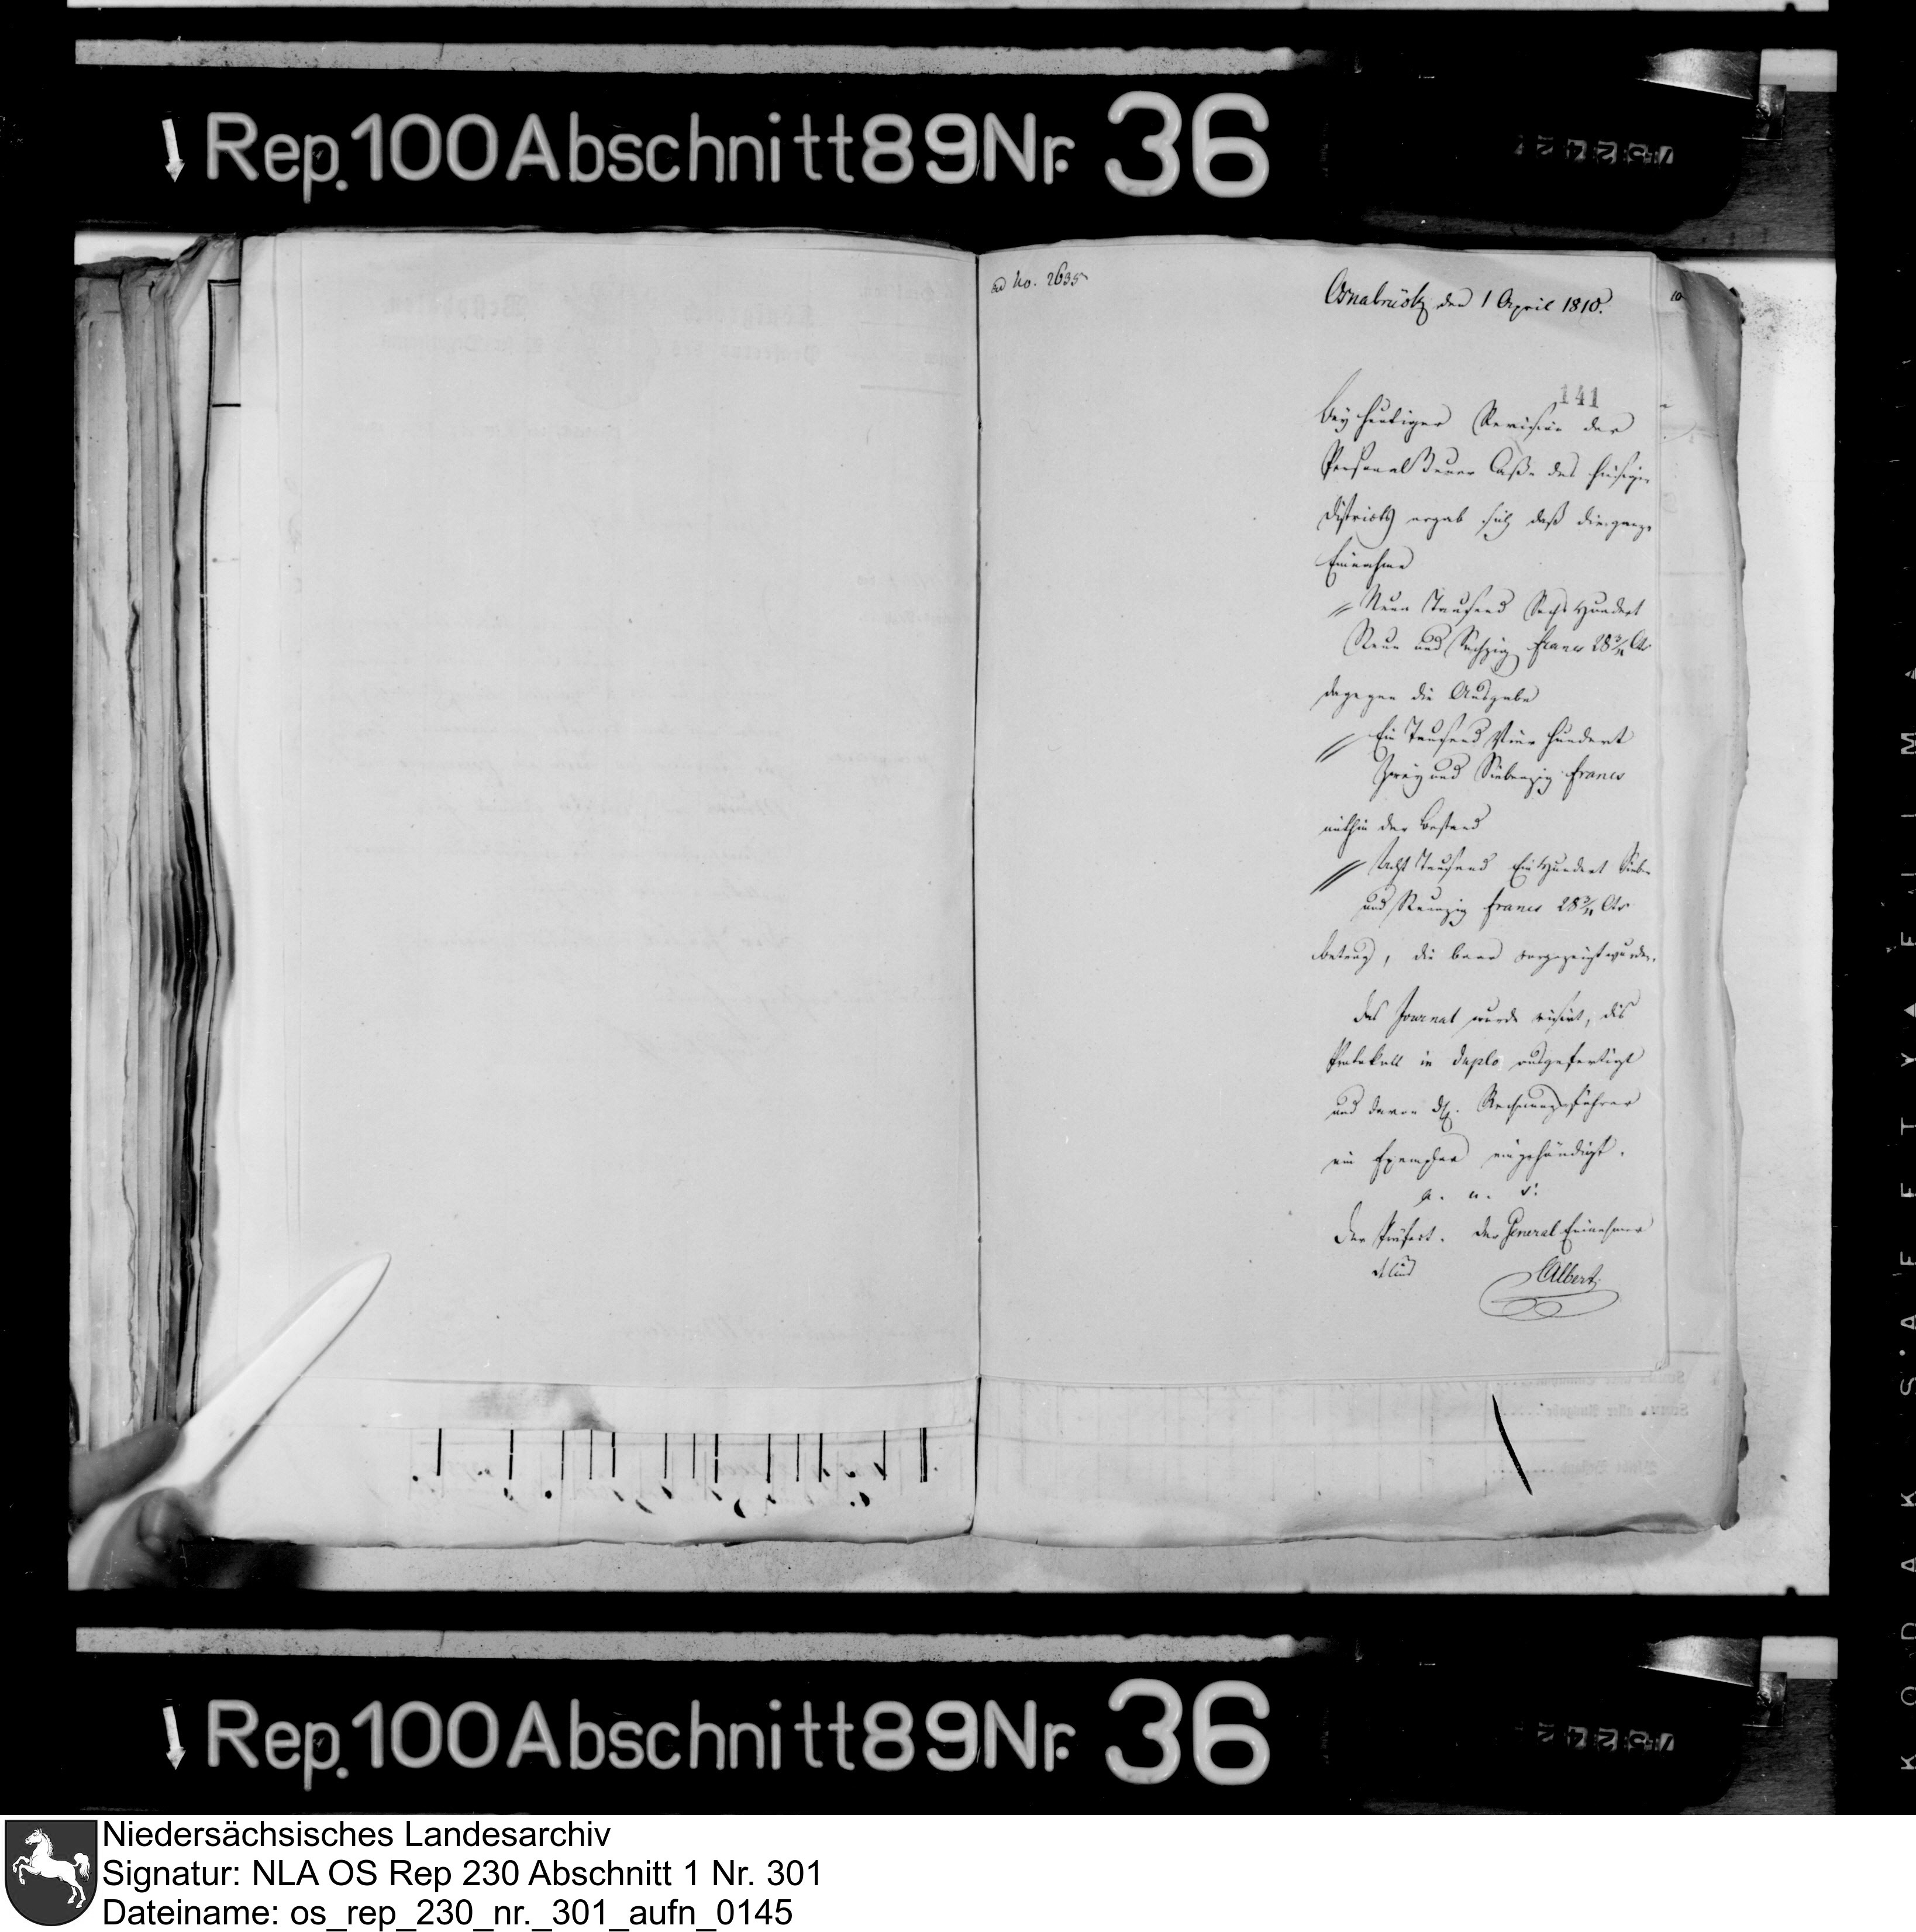 Rep. 100 Abschnitt 89 Nr. 36
ad No. 2635
Osnabrück den 1 April 1810.
141
Bey heutiger Revision der
Personalsteuer Caße des hiesigen
Districts ergab sich daß die ganze
Einnahme
Neun Tausend Sechs Hundert
Neun und Sechzig Francs 28 3/11 Cts
dagegen die Ausgabe
Ein Tausend Vier hundert
Zwey und Siebenzig Francs
mithin der Bestand
Acht Tausend Ein Hundert Sieben
und Neunzig Francs 28 3/11 Cts
betrug, die baar vorgezeigt wurden.
Das Journal wurde visirt, dis
Protokoll in duplo ausgefertigt
und davon d. Rechnungsführer
ein Exemplar eingehändigt.
a. u. s.
Der Präfect. der General Einnehmer
Albert
Rep. 100 Abschnitt 89 Nr. 36
Niedersächsisches Landesarchiv
Signatur: NLA OS Rep 230 Abschnitt 1 Nr. 301
Dateiname: os_rep_230_nr._301_aufn_0145